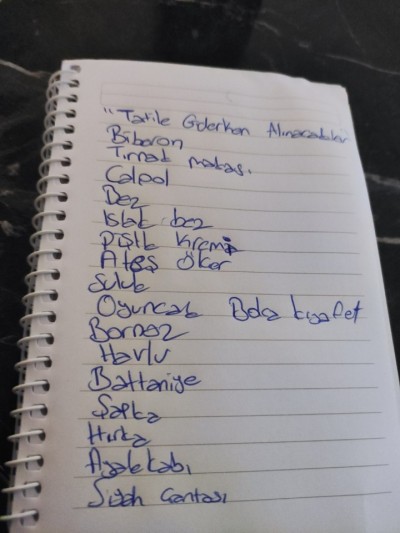 "Tatile Giderken Alınacaklar
Biberon
Tırnak makası.
Calpol
Bez
Islak bez
Pişik Kremi
Ateş Ölçer
Suluk
Oyuncak Bolca kıyafet
Bornoz
Havlu
Battaniye
Şapka
Hırka
Ayakkabı
Siyah Çantası